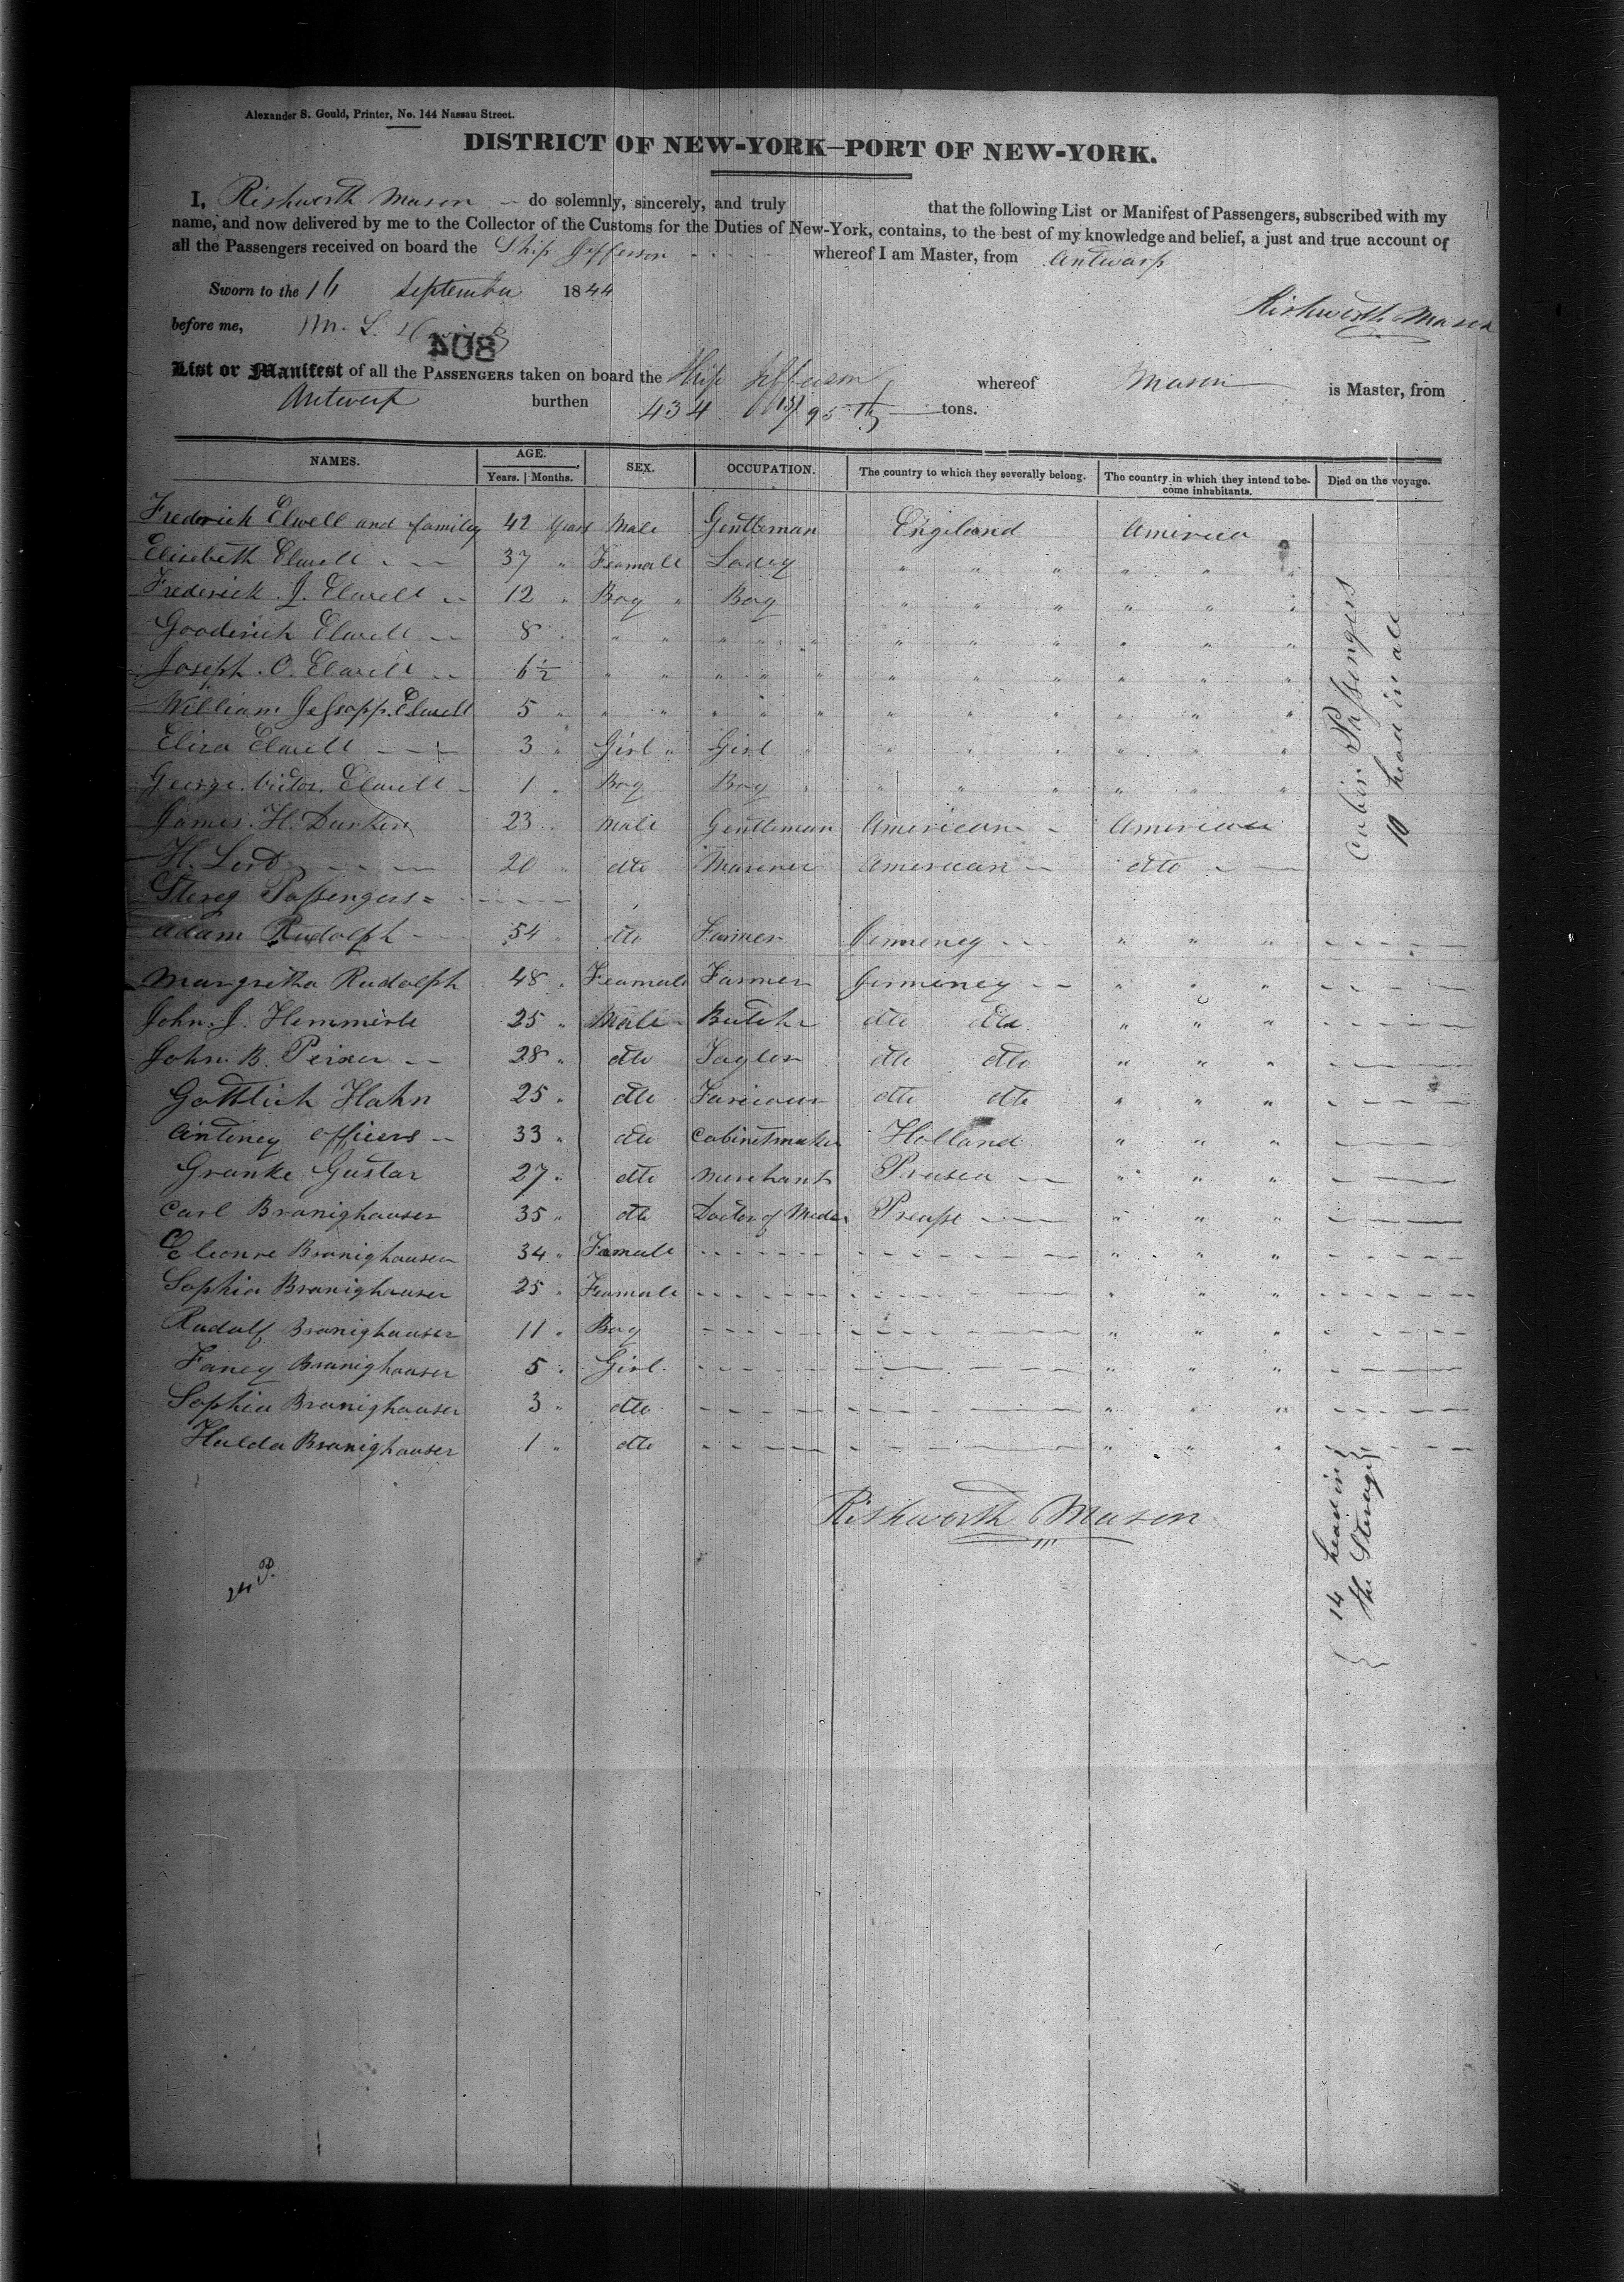 Alexander S. Gould, Printer, No. 144 Nassau Street.
DISTRICT OF NEW-YORK—PORT OF NEW-YORK.
I, Rishworth Mason do solemnly, sincerely, and truly that the following List or Manifest of Passengers, subscribed with my
name, and now delivered by me to the Collector of the Customs for the Duties of New-York, contains, to the best of my knowledge and belief, a just and true account of
all the Passengers received on board the Ship Jefferson whereof I am Master, from Antwarp
Sworn to the 16 September 1844
Rishworth Mason
before me, M. L.
408
List or Manifest of all the PASSENGERS taken on board the Ship Jefferson whereof Mason is Master, from
Antwerp burthen 434 13/95 th tons.
NAMES. AGE. Years. Months. SEX. OCCUPATION. The country to which they severally belong. The country in which they intend to become inhabitants. Died on the voyage.
Frederick Elwell and family 42 years Male Gentleman Engeland America
Elisebeth Elwell 37 " Feamale Ladey " " " " " "
Frederick J. Elwell 12 " Boy " Boy " " " " " "
Gooderich Elwell 8 " " " " " " " " " " " "
Joseph. O. Elwell 6 1/2 " " " " " " " " " " "
William Jessopp. Elwell 5 " " " " " " " " " " " "
Eliza Elwell 3 " Girl " Girl " " " " " " "
George. Victor. Elwell 1 " Boy Boy " " " " " " "
James. H. Durken 23 " Male Gentleman American America
H. Lord 20 " dto Mariner American dto
Cabin Passengers
10 head in all
Stereg Passengers =
Adam Rudolph 54 " dto Farmer Jermeney " " "
Margretha Rudolph 48 " Feamale Farmer Jermeney " " "
John. J. Hemmerle 25 " Male Butcher dto dto " " "
John. B. Peixer 28 " dto Taylor dto dto " " "
Gottlieh Hahn 25 " dto dto dto " " "
Antiney officers 33 " dto Cabinetmaker Holland " " "
Granke Gustav 27 " dto Merchant Prusea " " "
Carl Branighauser 35 " dto Doctor of Meder Preusse " " "
Eleonre Branighauser 34 " Famale " " "
Sophia Branighauser 25 " Feamale " " "
Rudolf Branighauser 11 " Boy " " "
Faney Branighauser 5 " Girl " " "
Sophia Branighauser 3 " dto " " "
Hulda Branighauser 1 " dto " " "
14 head in
the Sterage
Rishworth Mason
24 P.